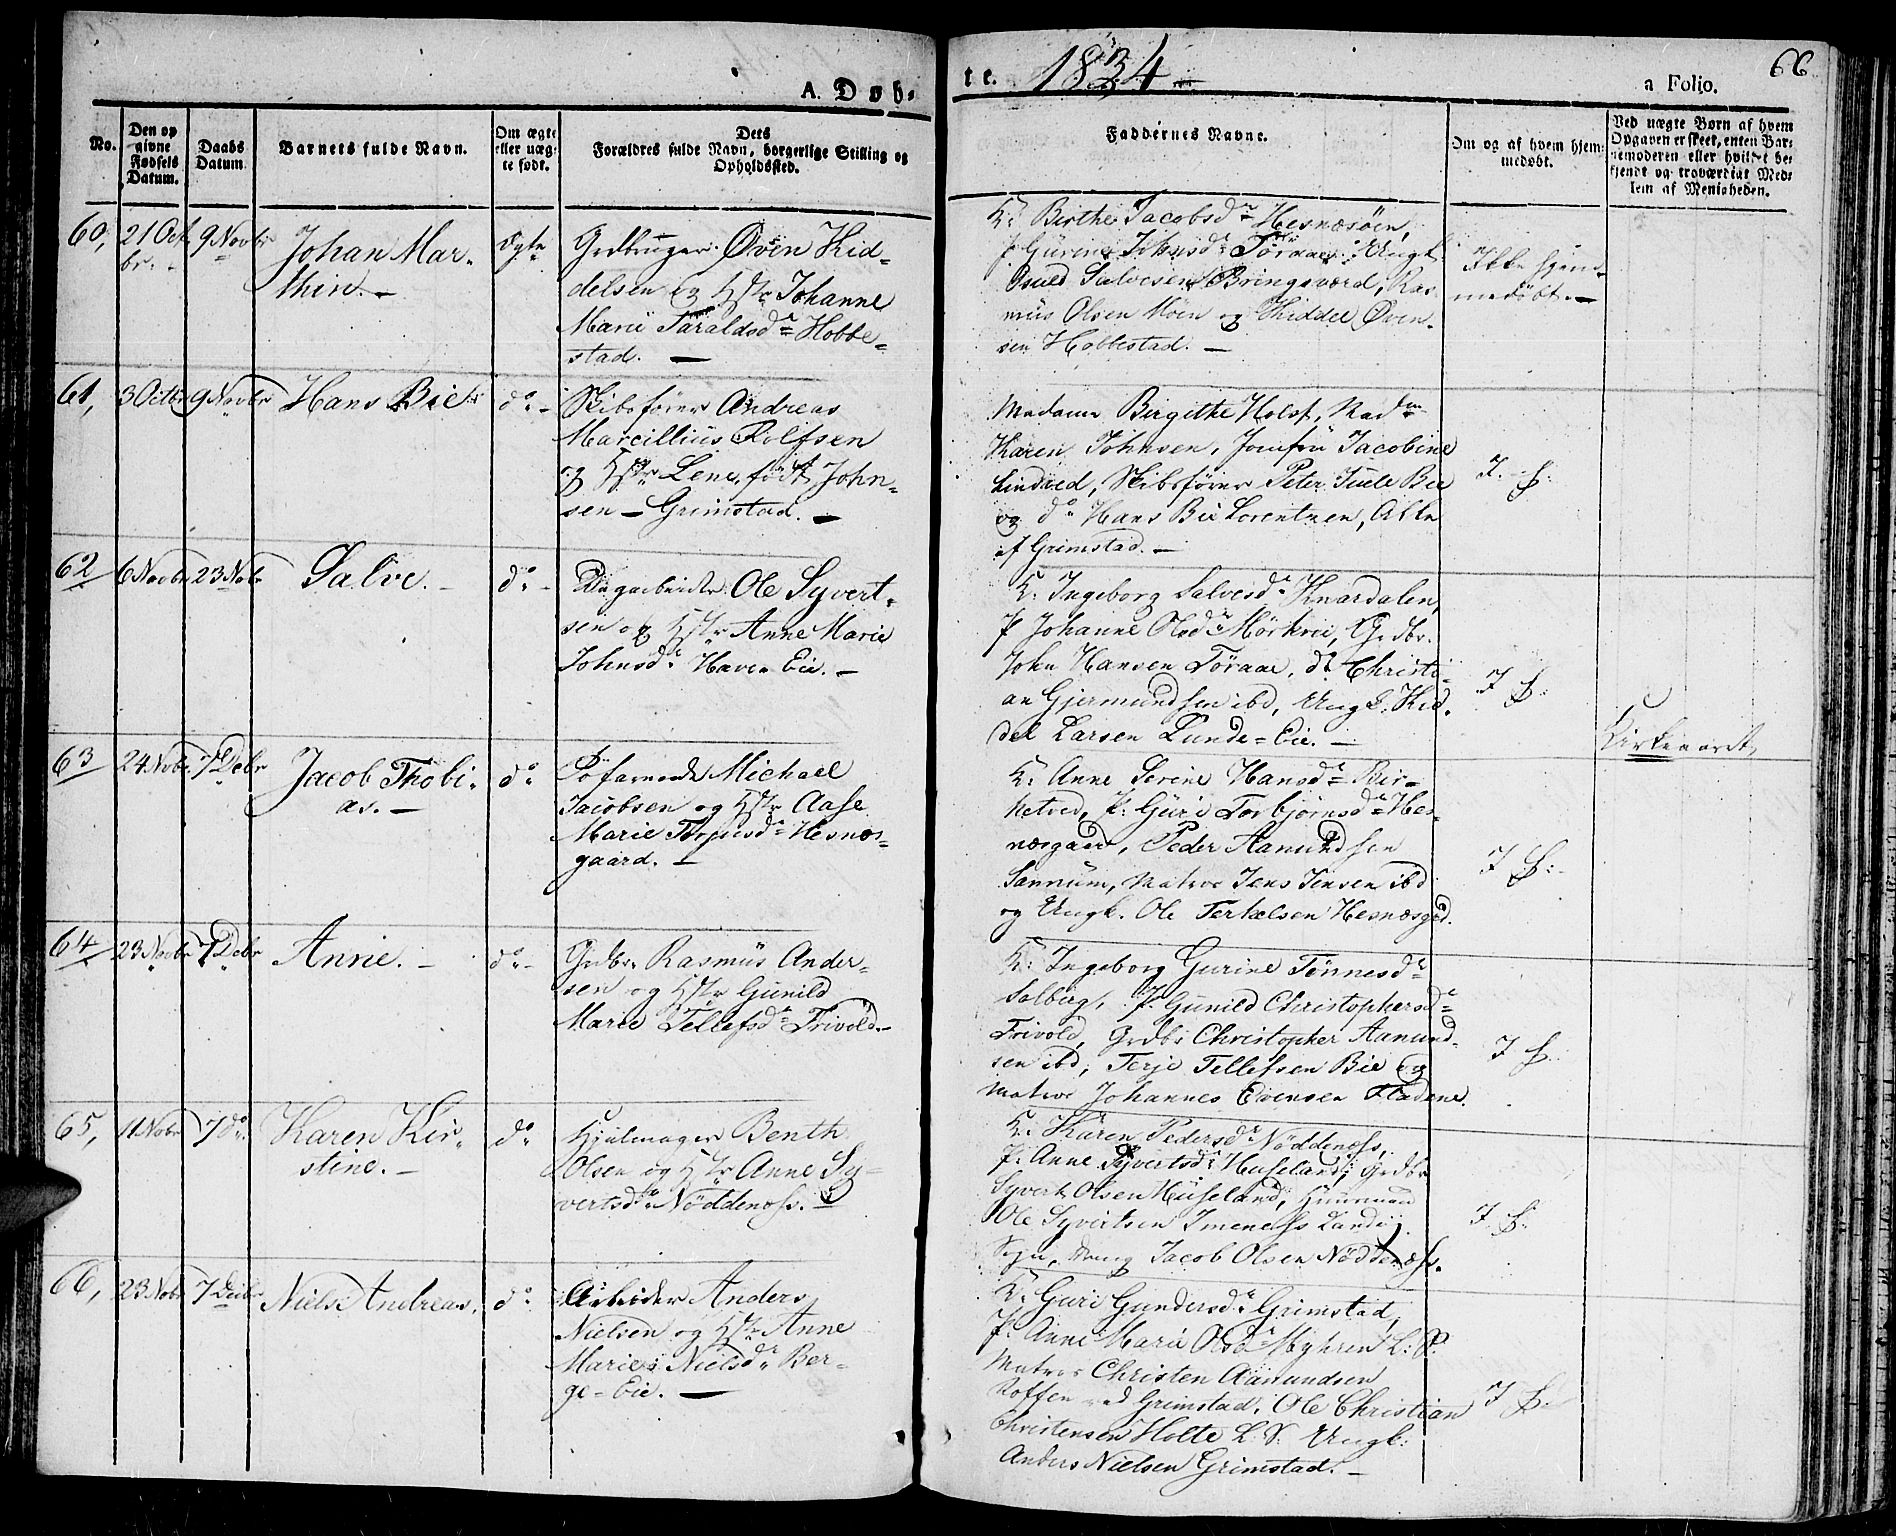 A. Døb-
te. 1834 –
66
a Folio.
No.
Den op
givne
Fødsels
Datum.
Daabs
Datum.
Barnets fulde Navn.
Om ægte
eller uæg-
te født.
Dets
Forældres fulde Navn, borgerlige Stilling og
Opholdssted.
Faddernes Navne.
Om og af hvem hjem-
medøbt.
Ved uægte Børn af hvem
Opgaven er skeet, enten Bar-
nemoderen eller hvilket be-
kjendt og troværdigt Med-
lem af Menigheden.
60,
21 Oct
br. -
9 Novbr
Johan Mar-
thin. –
ægte
Grdbruger Øven Kid-
delsen og Hstr Johanne
Marie Taraldsd. Hobbe-
stad. –
K: Birthe Jacobsd. Hesnæsøen,
P. Gurine Johnsd. Föraae, Ungk.
Osuld Salvesen Bringsværd, Ras-
mus Olsen Moen og Kiddel Øven-
sen Hobbestad. –
Ikke hjem-
medöbt. –
61,
3 Octbr
9 Novbr
Hans Bie
do -
Skibsförer Andreas
Marcillius Rolfsen
og Hstr Lene, födt John-
sen – Grimstad. –
Madame Birgithe Holst, Mad.
Karen Johnsen, Jomfru Jacobine
Lindved, Skibsförer Peter Juele Bie
og do Hans Bie Lorentzen, Alle
af Grimstad. –
I. H:
62
6 Novbr
23 Nobr
Salve. –
do -
Dagarbeider Ole Syvert-
sen og Hstr Anne Marie
Johnsd. Haven Eie. –
K. Ingeborg Salvesd. Knardalen,
P Johanne Olsd. Mörkrei, Grdbr.
John Hansen Föraae, do Christi-
an Gjermundsen ibd, Ungk. Kid-
del Larsen Lunde-Eie. –
I H:
63
24 Nobr
7 Debr
Jacob Thobi-
as. –
do
Söfarende Michael
Jacobsen og Hstr Aase
Marie Terjesd. Hesnæs-
gaard. –
K: Anne Serine Hansd. Bir-
ketved, P: Guri Torbjörnsd. Hes-
næsgaard, Peder Aamundsen
Sannum, Matros Jens Jensen ibd
og Ungk. Ole Terkelsen Hesnæsgd.
I H:
Kirkevaret
64
23 Novbr
7 Debr
Anne. –
do -
Grdbr Rasmus Ander-
sen og Hstr Gunild
Marie Tellefsd. Frivold. –
K: Ingeborg Gurine Tönnesd.
Solberg, P. Gunild Christophersd.
Frivold, Grdbr Christopher Aamund-
sen ibd, Terje Tellefsen Bie og
Matros Johannes Evensen Fladene.
I H:
65,
11 Nobr
7 do
Karen Kir-
stine. –
do
Hjulmager Benth
Olsen og Hstr Anne Sy-
vertsd. Nöddenæss. –
K: Karen Pedersd. Nöddenæss,
P: Anne Syvertsd. Huseland, Grdbr
Syvert Olsen Huseland, Huusmand
Ole Syvertsen Imenæss Landvig
Sogn, Dreng Jacob Olsen Nöddenæss.
I H:
66,
23 Nobr
7 Decbr
Niels Andreas.
do
Arbeider Anders
Nielsen og Hstr Anne
Marie Nielsd. Ber-
ge-Eie. –
K: Guri Gundersd. Grimstad,
P. Anne Marie Olsd. Myhren L. S.
Matros Christen Aamundsen
ved Grimstad, Ole Christian
Christensen Holte L: S: Ungk:
Anders Nielsen Grimstad. –
I H: